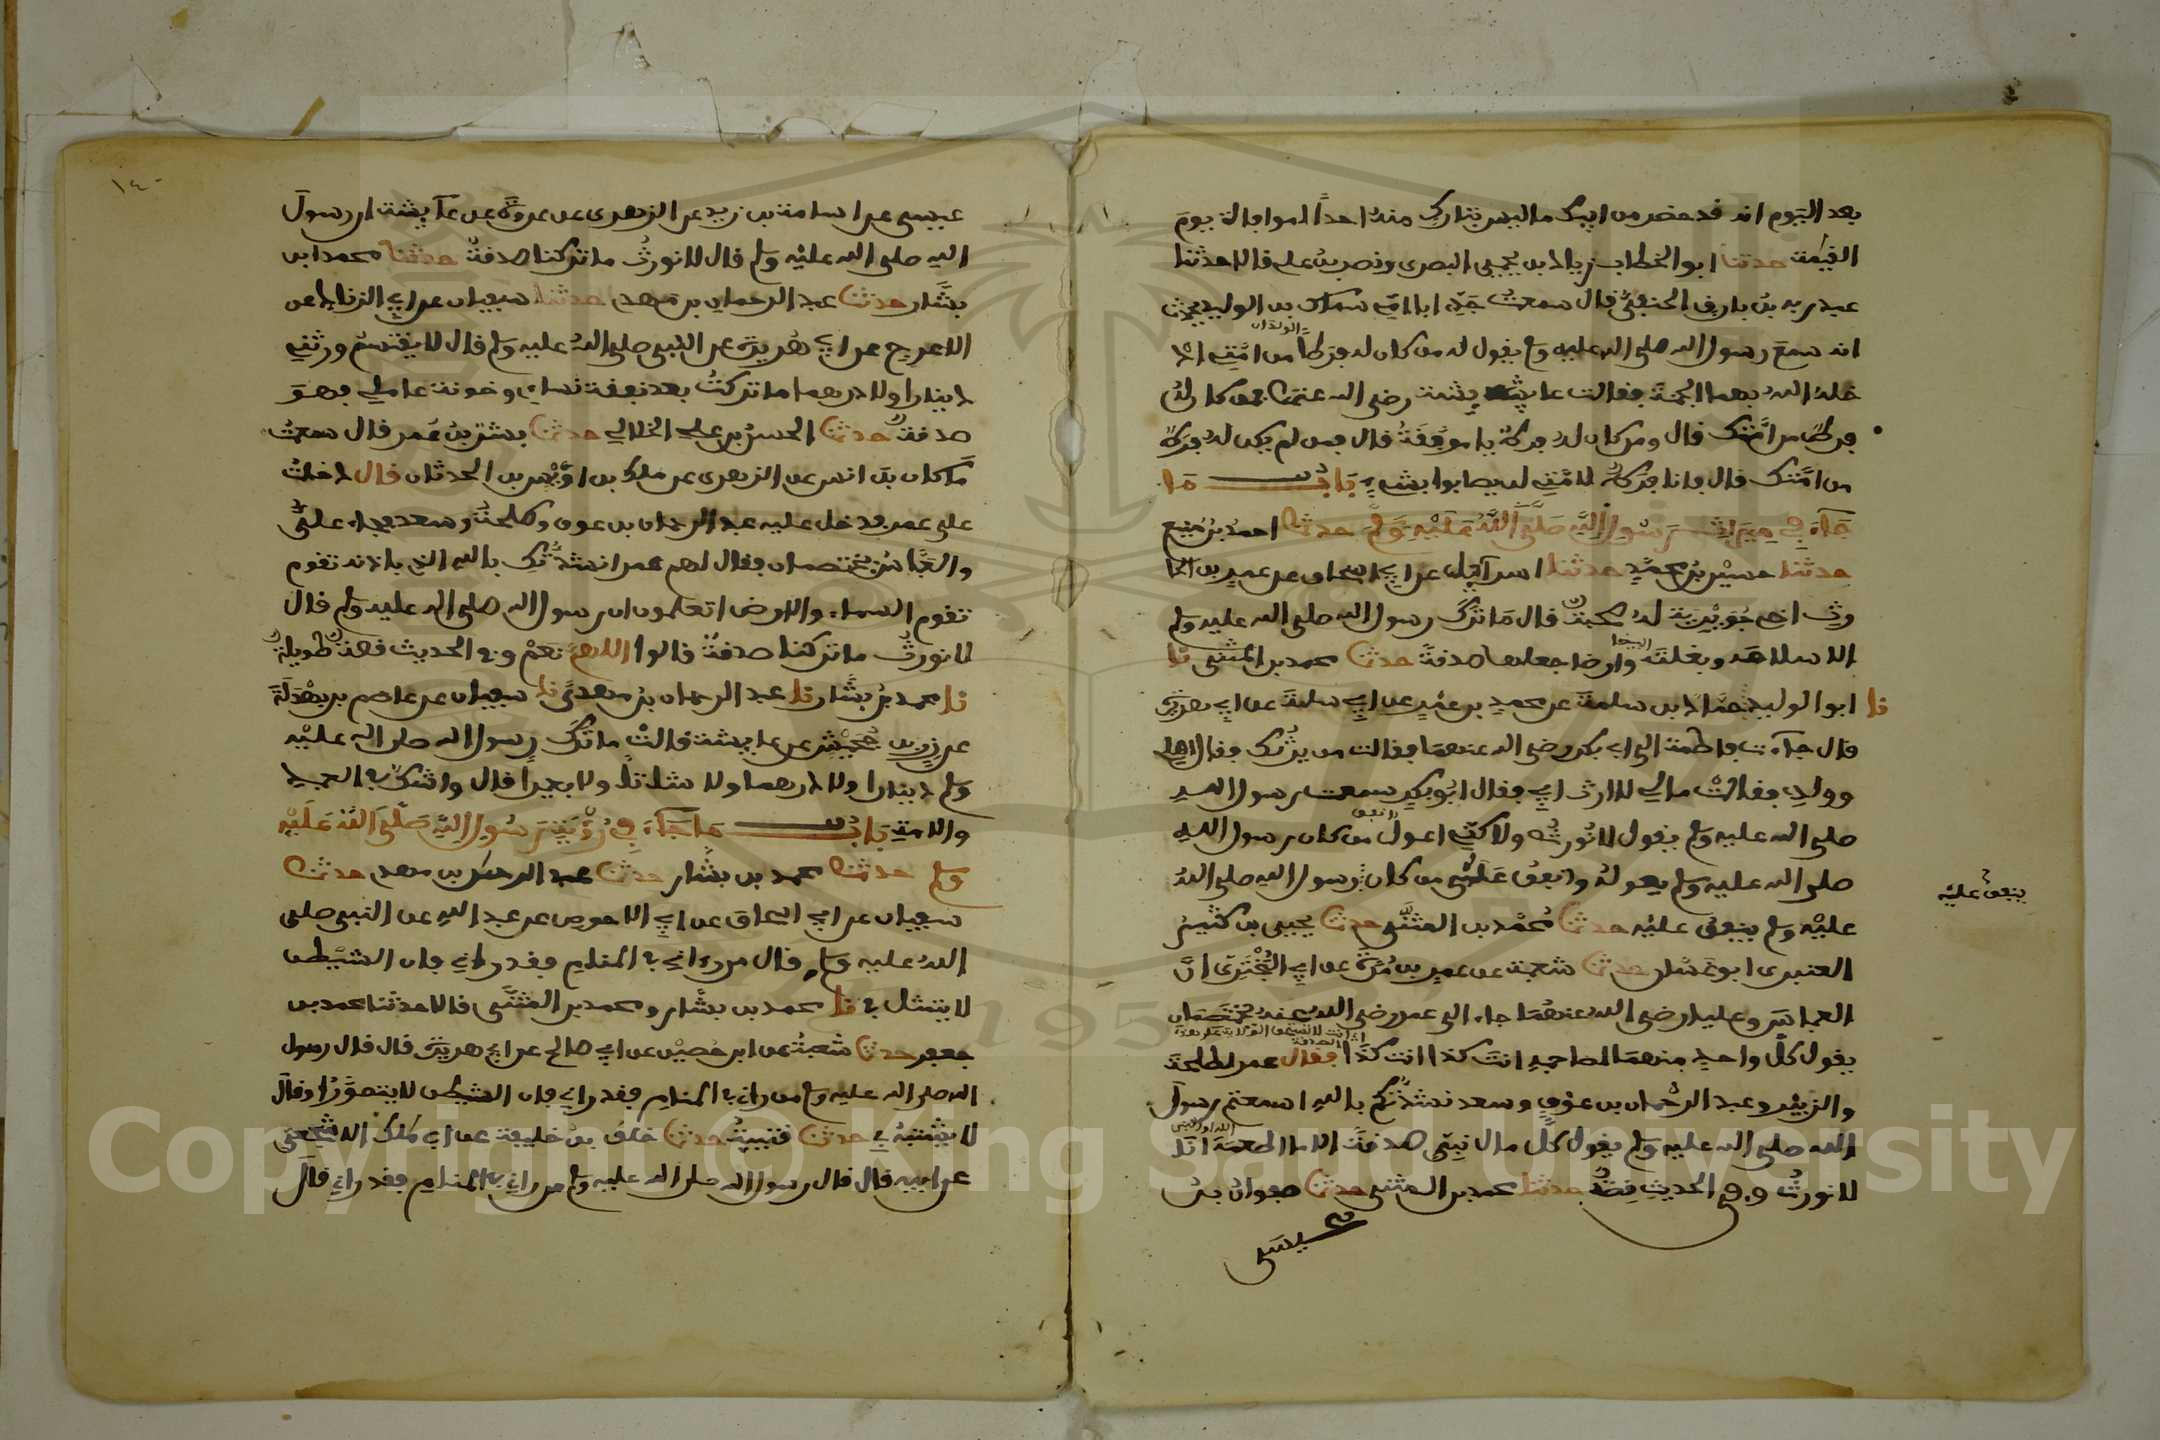 بعد اليوم انه قد حضر من ابيك ما ليس بتارك منه احدا الموافاة يوم
القيمة حدثنا ابو الخطاب زياد بن يحيى البصرى ونصر بن على قالا حدثنا
عبد ربه بن بارق الحنفى قال سمعت جدى ابا امى سماك بن الوليد يحدث
انه سمع رسول الله صلى الله عليه وسلم يقول له من كان له فرطا من امتى اد
خله الله بهما الجنة فقالت عايشة رضى الله عنها فمن كان له
فرط من امتك قال ومن كان له فرط يا موفقة قال فمن لم يكن له فرط
من امتك قال فانا فرط لامتى لن يصابوا بمثلى باب ما
جاء في ميراث رسول الله صلى الله عليه وسلم حدثنا احمد بن منيع
حدثنا حسين بن محمد حدثنا اسراءيل عن ابي اسحاق عن عمرو بن الحا
رث اخى جويرية له صحبة قال ما ترك رسول الله صلى الله عليه وسلم
الا سلاحه وبغلته وارضا جعلها صدقة حدثنا محمد بن المثنى نا
نا ابو الوليد حماد بن سلمة عن محمد بن عمرو عن ابي سلمة عن ابي هريرة
قال جاءت فاطمة الى ابى بكر رضى الله عنهما فقالت من يرثك فقال اهلى
وولدى فقالت مالي لا ارث ابي فقال ابو بكر سمعت رسول الله
صلى الله عليه وسلم يقول لا نورث ولاكنى اعول من كان رسول الله
صلى الله عليه وسلم يعوله وانفق على من كان رسول الله صلى الله
ينفق عليه
عليه وسلم ينفق عليه حدثنا محمد بن المثنى حدثنا يحيى بن كثير
العنبرى ابو غسان حدثنا شعبة عن عمرو بن مرة عن ابي البخترى ان
العباس وعليا رضى الله عنهما جاء الى عمر رضى الله عنه يختصمان
يقول كل واحد منهما لصاحبه انت كذا انت كذا فقال عمر لطلحة
والزبير وعبد الرحمان بن عوف وسعد نشدتكم بالله اسمعتم رسول
الله صلى الله عليه وسلم يقول كل مال نبى صدقة الا ما اطعمه انا
لا نورث وفي الحديث قصة حدثنا محمد بن المثنى حدثنا صفوان بن
عيسى
١٤٠
عيسى عن اسامة بن زيد عن الزهرى عن عروة عن عايشة ان رسول
الله صلى الله عليه وسلم قال لا نورث ما تركنا صدقة حدثنا محمد ابن
بشار حدثنا عبد الرحمان بن مهدى حدثنا سفيان عن ابي الزناد عن
الاعرج عن ابي هريرة عن النبى صلى الله عليه وسلم قال لا يقتسم ورثتي
دينارا ولا درهما ما تركت بعد نفقة نساءى ومئونة عاملي فهو
صدقة حدثنا الحسن بن علي الخلال حدثنا بشر بن عمر قال سمعت
مالك بن انس عن الزهرى عن ملك بن اوس بن الحدثان قال دخلت
على عمر فدخل عليه عبد الرحمان بن عوف وطلحة وسعد وجاء على
والعباس يختصمان فقال لهم عمر انشدتك بالله الذى باذنه تقوم
تقوم السماء والارض اتعلمون ان رسول الله صلى الله عليه وسلم قال
لا نورث ما تركنا صدقة قالوا اللهم نعم وفي الحديث قصة طويلة
نا محمد بن بشار نا عبد الرحمان بن مهدى نا سفيان عن عاصم بن بهدلة
عن زر بن حبيش عن عايشة قالت ما ترك رسول الله صلى الله عليه
وسلم دينارا ولا درهما ولا شاة ولا بعيرا قال واشك في العبد
والامة باب ما جاء في رؤية رسول الله صلى الله عليه
وسلم حدثنا محمد بن بشار حدثنا عبد الرحمن بن مهدى حدثنا
سفيان عن ابي اسحاق عن ابي الاحوص عن عبد الله عن النبى صلى
الله عليه وسلم قال من رءانى في المنام فقد رءاني فان الشيطن
لا يتمثل بي نا محمد بن بشار ومحمد بن المثنى قالا حدثنا محمد بن
جعفر حدثنا شعبة عن ابي حصين عن ابي صالح عن ابي هريرة قال قال رسول
الله صلى الله عليه وسلم من رءانى في المنام فقد رءاني فان الشيطن لا يتصور او قال
لا يتشبه بي حدثنا قتيبة حدثنا خلف بن خليفة عن ابي ملك الاشجعى
عن ابيه قال قال رسول الله صلى الله عليه وسلم من رءاني في المنام فقد رءاني قال
Copyright © King Saud University
1957